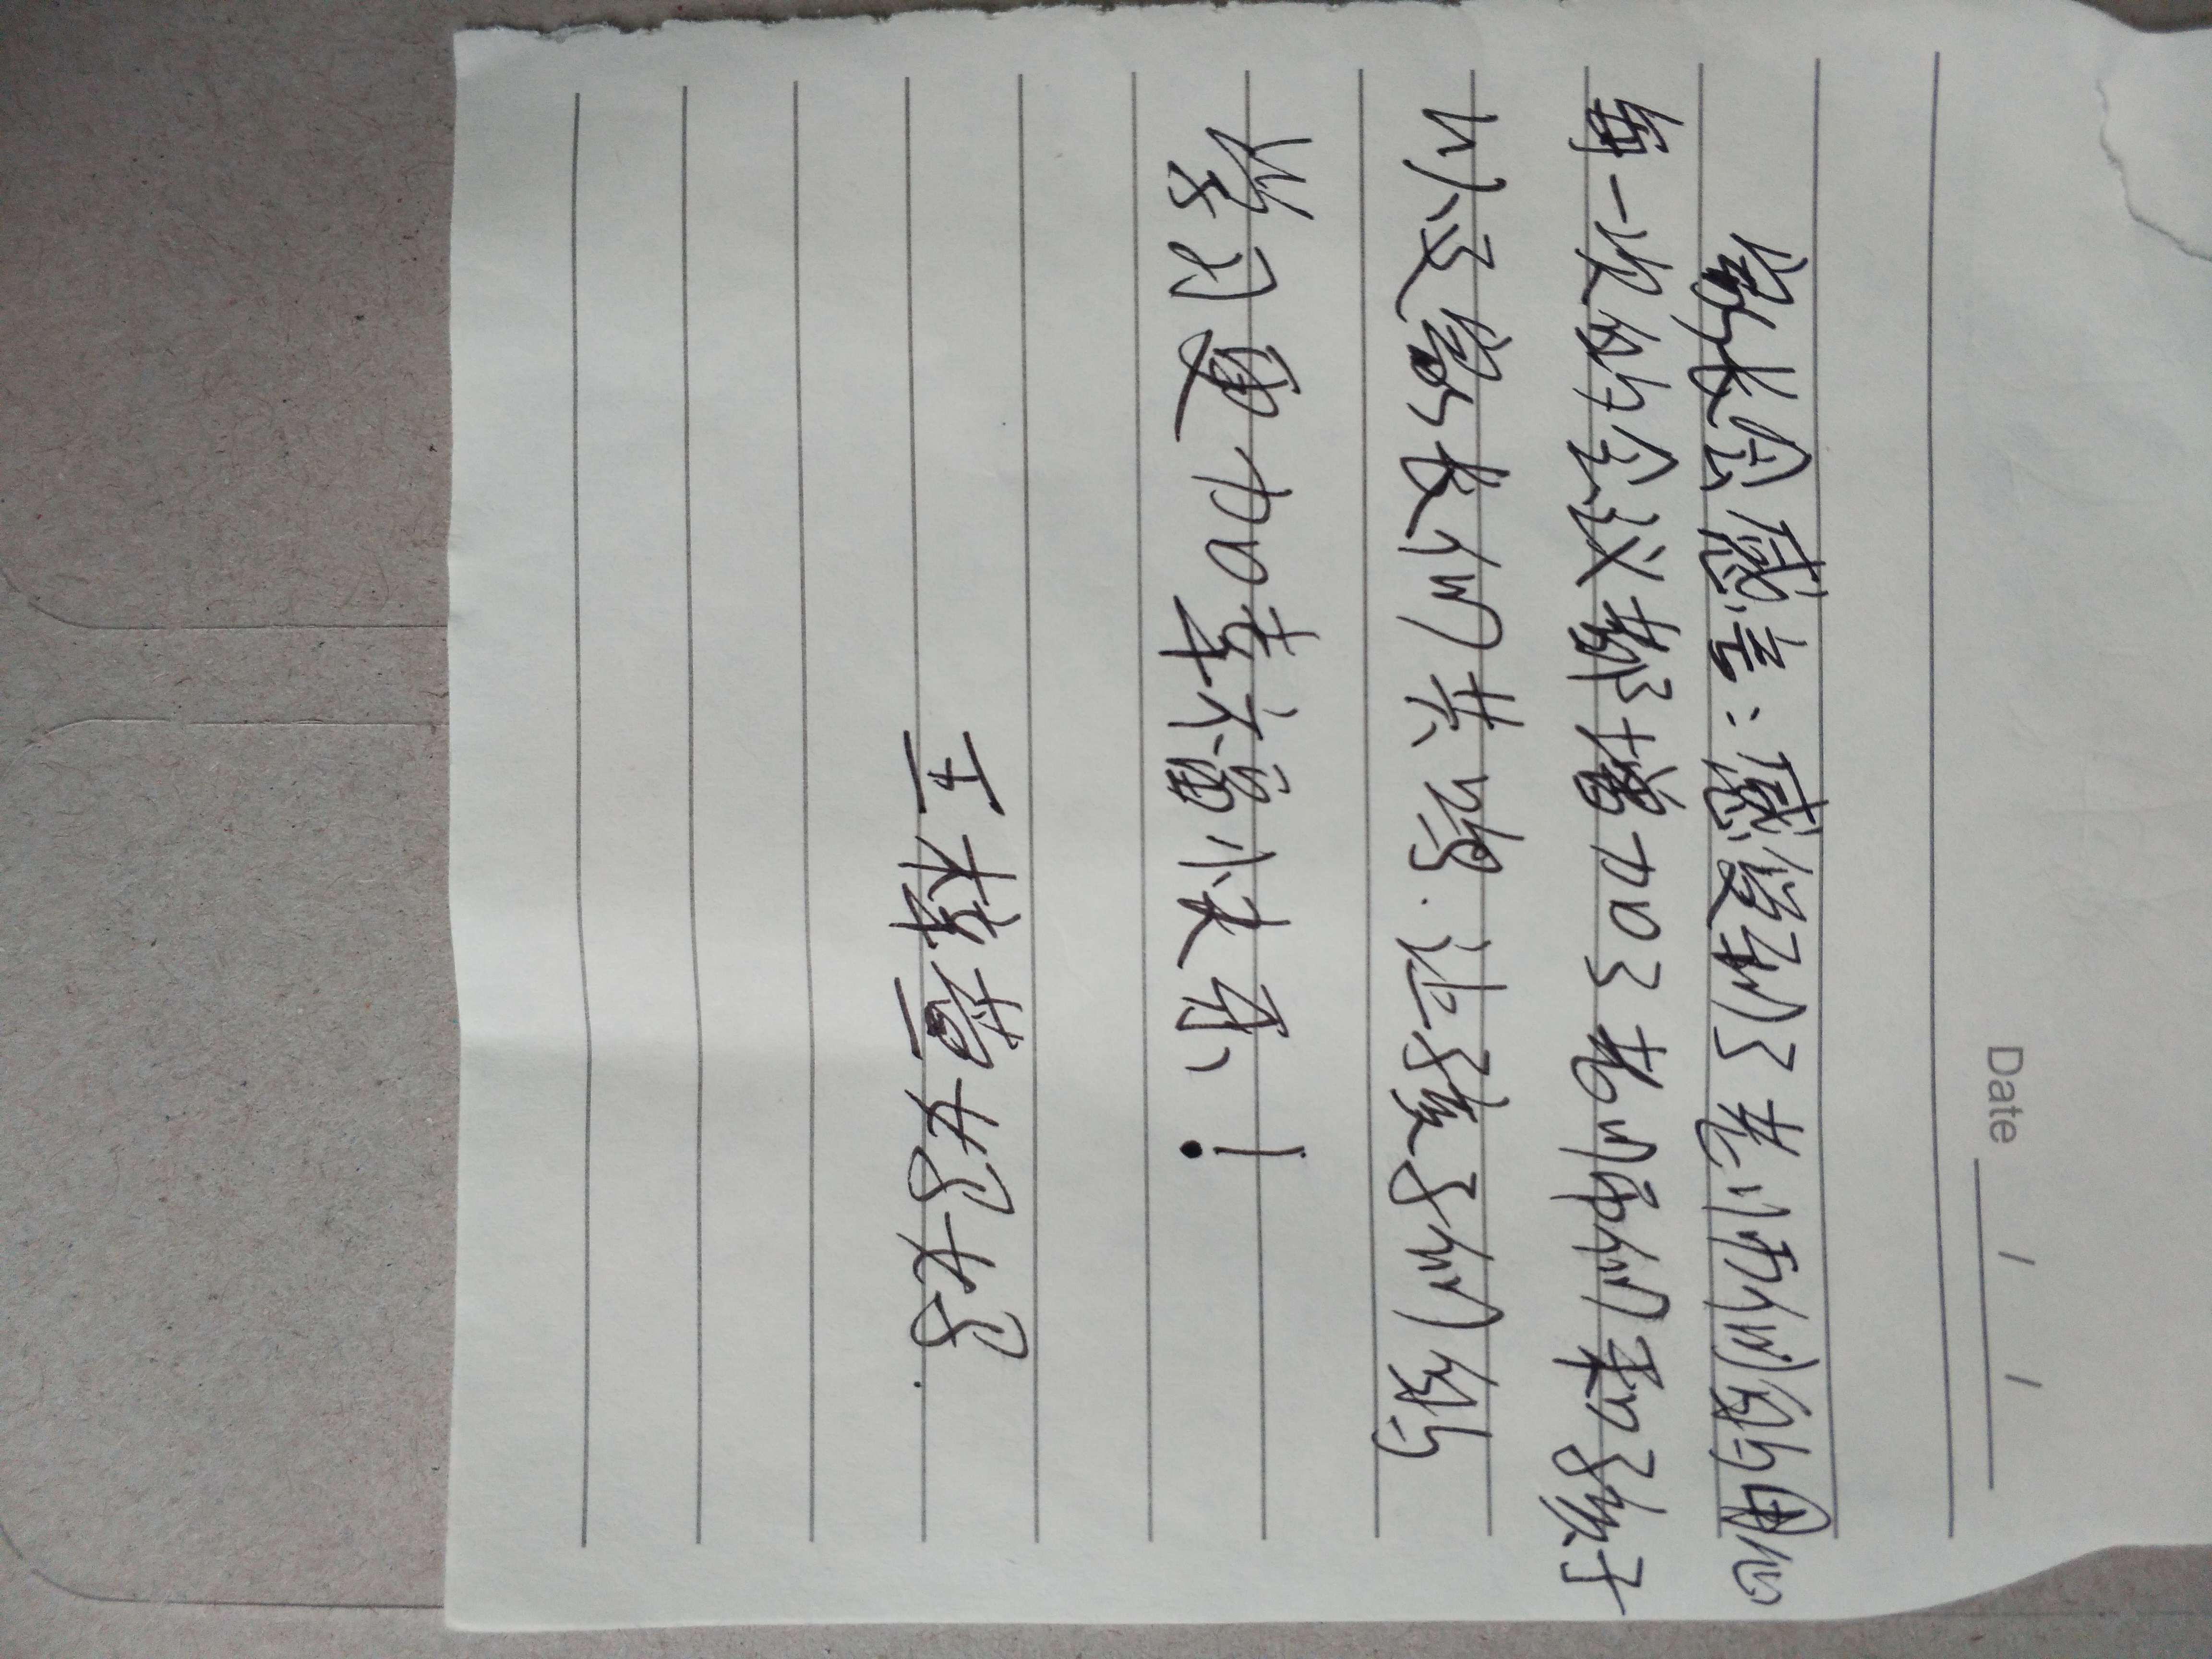 Date / /
家长会感言:感受到了老师们的用心
每一次的会议都增加了老师们和孩子
以及家长们共鸣.让孩子们的
学习更加幸福快乐!
王梓萱妈妈.